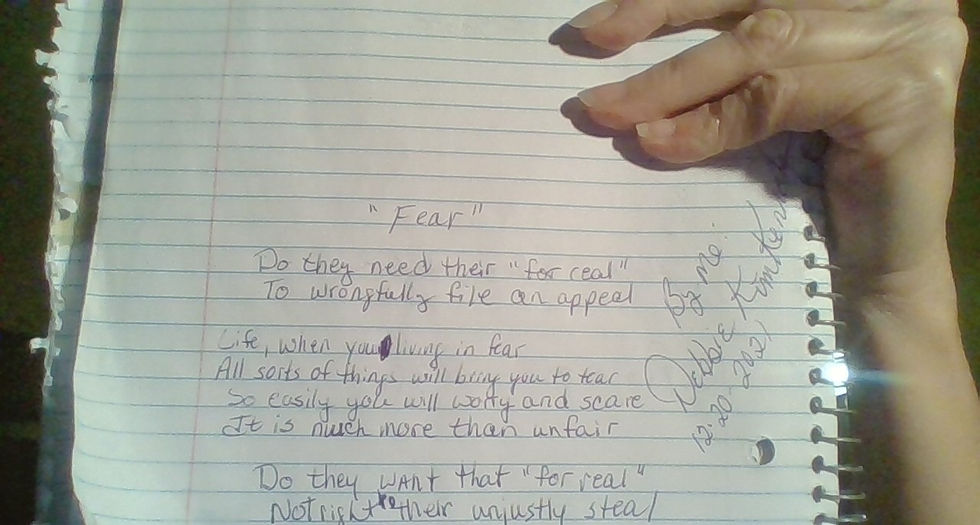 "Fear"
Do they need their "for real"
To wrongfully file an appeal
Life, when you living in fear
All sorts of things will bring you to tear
So easily you will worry and scare
It is much more than unfair
Do they want that "for real"
Not right to their unjustly steal
By me:
Debbie Kim
12-20-2021